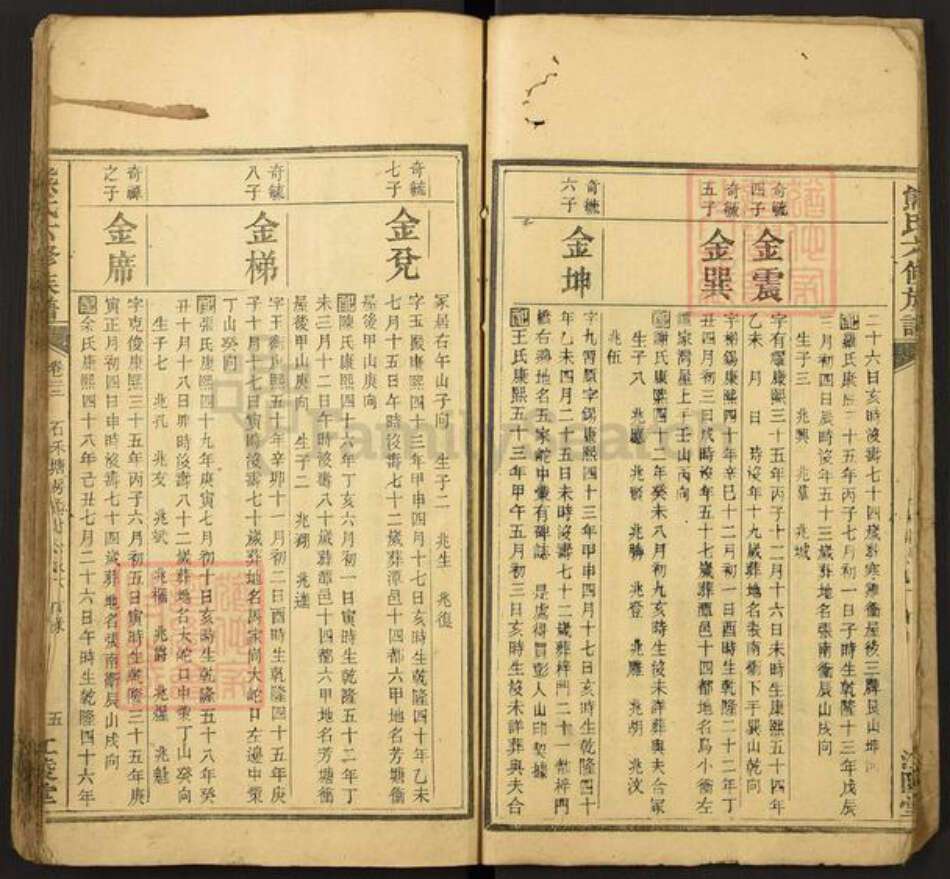 熊氏六修族譜
二十六日亥時沒壽七十四歲葬寒衝屋後三牌艮山坤向
配羅氏康熙二十五年丙子七月初一日子時生乾隆十三年戊辰
三月初四日辰時沒年五十三歲葬地名張南衝辰山戌向
生子三 兆興 兆羣 兆城
奇毓四子
金震
字有聲康熙三十五年丙子十二月十六日未時生康熙五十四年
乙未 月 日 時沒年十九歲葬地名張南衝下手巽山乾向
奇毓五子
金巽
字楊錫康熙四十年辛巳十二月初一日酉時生乾隆二十二年丁
丑四月初三日戌時沒年五十七歲葬潭邑十四都地名烏小衝左
譚家灣屋上手壬山丙向
配謝氏康熙四十二年癸未八月初九亥時生沒未詳葬與夫合冢
生子八 兆應 兆賢 兆聯 兆登 兆雕 兆朔 兆汶
兆伍
奇毓六子
金坤
字九習康熙四十三年甲申四月十七日亥時生乾隆四十
年乙未四月二十五日未時沒壽七十二歲葬梓門二十一都梓門
橋右灣地名五家蛇中 有碑誌 是處得買彭人山印契據
配王氏康熙五十三年甲午五月初三日亥時生歿未詳葬與夫合
冢居右午山子向 生子二 兆生 兆復
奇毓七子
金兌
字玉殿康熙四十三年甲申四月十七日亥時生乾隆四十年乙未
七月十五日午時沒壽七十二歲葬潭邑十四都六甲地名芳塘衝
屋後甲山庚向
配陳氏康熙四十六年丁亥六月初一日寅時生乾隆五十二年丁
未三月十二日午時沒壽八十歲葬潭邑十四都六甲地名芳塘衝
屋後甲山庚向 生子二 兆翔 兆達
奇毓八子
金梯
字王衝康熙五十年辛卯十一月初二日酉時生乾隆四十五年庚
子十月十七日寅時沒壽七十歲葬地名馮家衝大蛇口左邊中
丁山癸向
配張氏康熙四十九年庚寅七月初十日亥時生乾隆五十八年癸
丑十月十八日卯時沒壽八十二歲葬地名大蛇口中 丁山癸向
生子七 兆孔 兆友 兆斌 兆福 兆爵 兆煋 兆魁
奇嶂之子
金席
字克俊康熙三十五年丙子六月初五日寅時生乾隆三十五年庚
寅正月初四日申時沒壽七十四歲葬地名張南衝辰山戌向
配余氏康熙四十八年己丑七月二十六日午時生乾隆四十六年
熊氏六修族譜
卷三
五
江陵堂